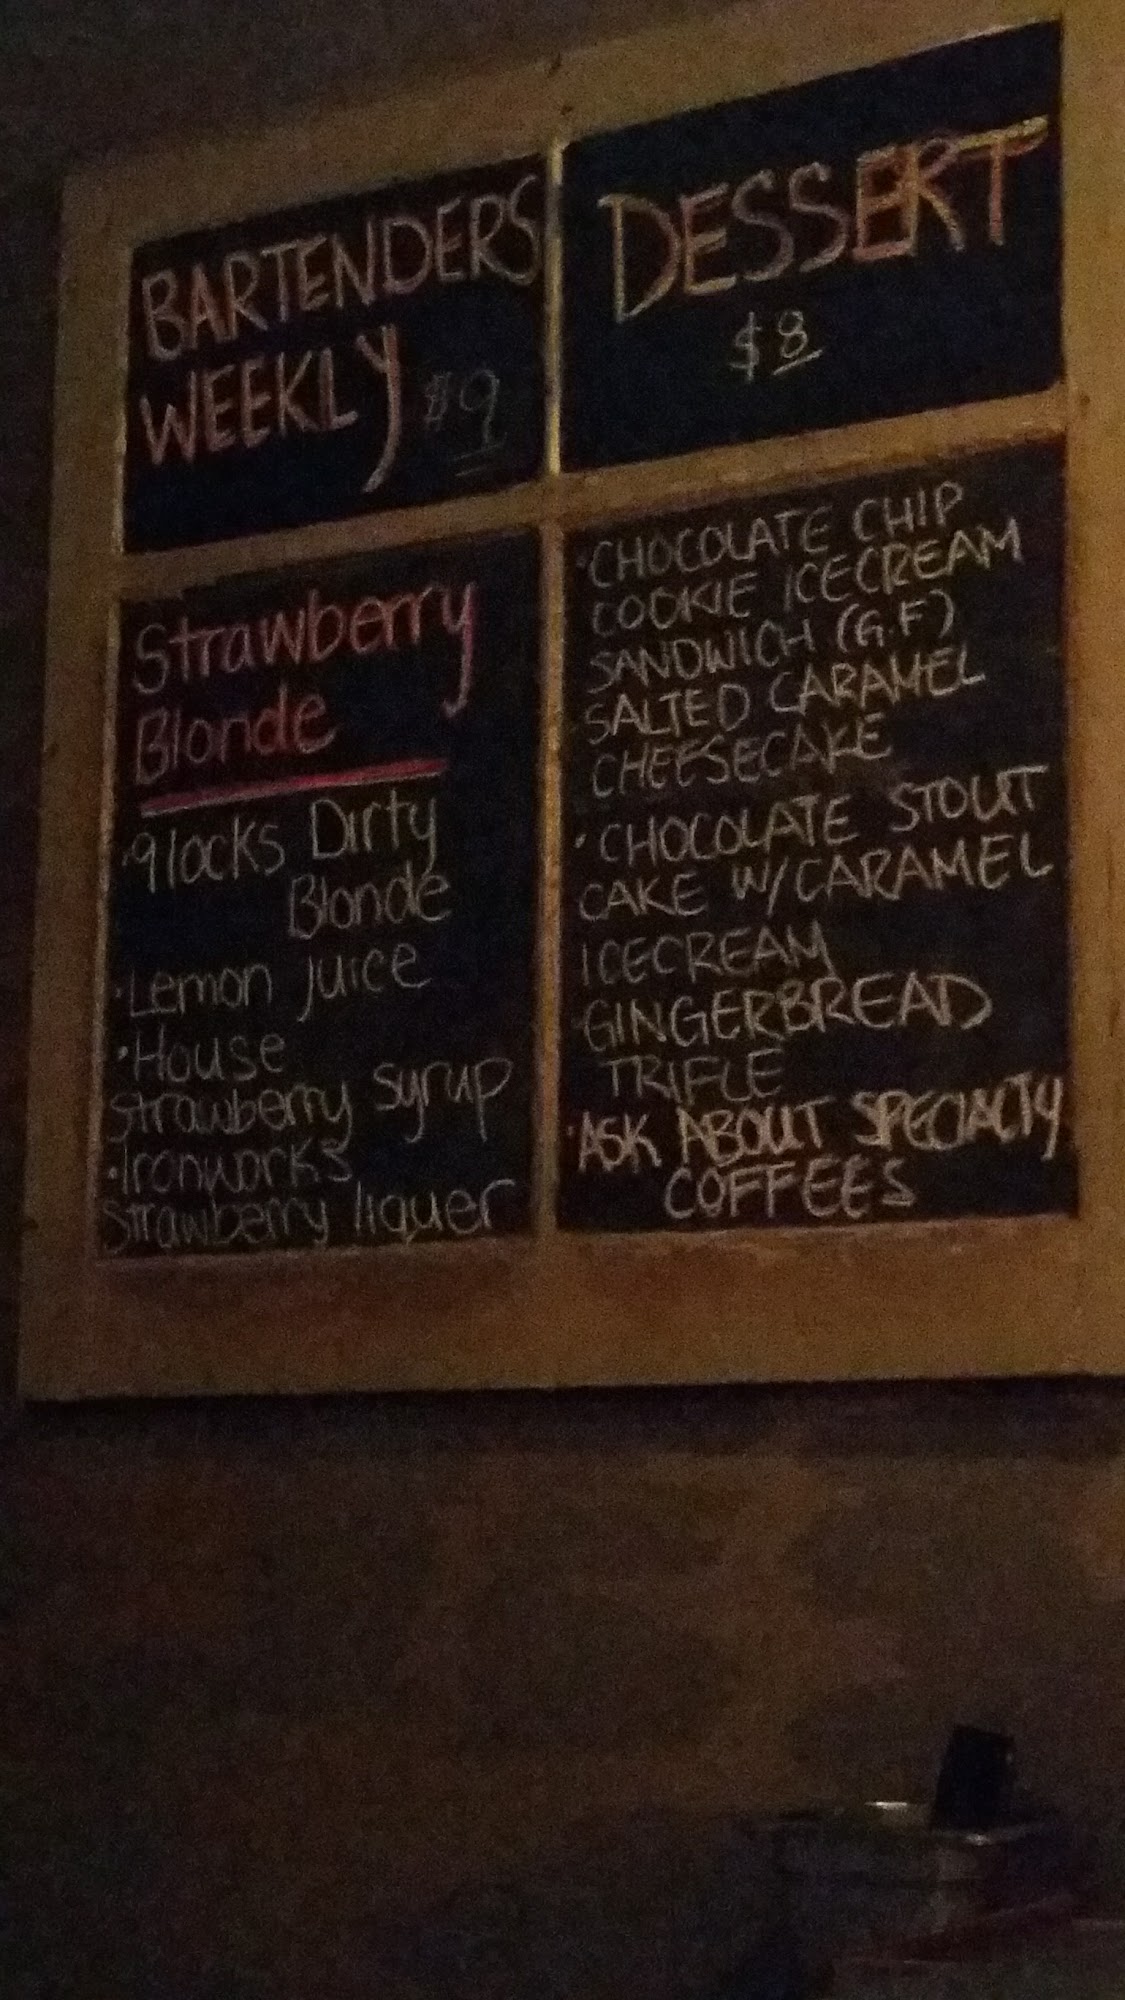 BARTENDERS
WEEKLY $9
Strawberry
Blonde
• 9locks Dirty
Blonde
• Lemon juice
• House
Strawberry syrup
• Ironworks
Strawberry liquer
DESSERT
$8
• CHOCOLATE CHIP
COOKIE ICECREAM
SANDWICH (G.F)
• SALTED CARAMEL
CHEESECAKE
• CHOCOLATE STOUT
CAKE W/CARAMEL
ICECREAM
• GINGERBREAD
TRIFLE
• ASK ABOUT SPECIALTY
COFFEES